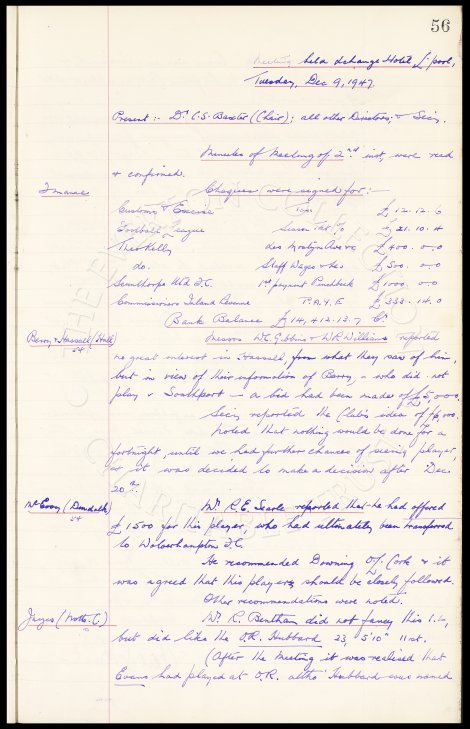 56
Meeting held Exchange Hotel, L'pool,
Tuesday, Dec 9, 1947.
Present :- Dr. C.S. Baxter (Chair); all other Directors; & Secy.
Minutes of Meeting of 2nd inst, were read
& confirmed.
Finance
Cheques were signed for:-
Customs & Excise £12.12.6
Football League Season Tkt £21.10.4
Theo Kelly £400.0.0
do. Staff Wages £500.0.0
Scunthorpe Utd F.C. 1st payment £1000.0.0
Commissioners Inland Revenue P.A.Y.E £333.14.0
Bank Balance £14,412.13.7 Cr
Berry & Hassall (Hull)
Messrs W.C. Gibbins & W.R. Williams reported
no great interest in Hassall, from what they saw of him,
but in view of their information of Berry, - who did not
play v Southport - a bid had been made of £5,000.
Secy reported the Club's idea of £6,000.
Noted that nothing would be done for a
fortnight, until we had further chances of seeing player,
or it was decided to make a decision after Dec
20th.
McEvoy (Dundalk)
Mr. R.E. Searle reported that he had offered
£1500 for this player, who had ultimately been transferred
to Wolverhampton F.C.
He recommended Downing of Cork & it
was agreed that this player should be closely followed.
Other recommendations were noted.
Jayes (Notts C.)
Mr. R. Bentham did not fancy this
but did like the O.R. Hubbard 23, 5'10" 11st.
(After the Meeting it was realised that
Evans had played at O.R. altho' Hubbard was named